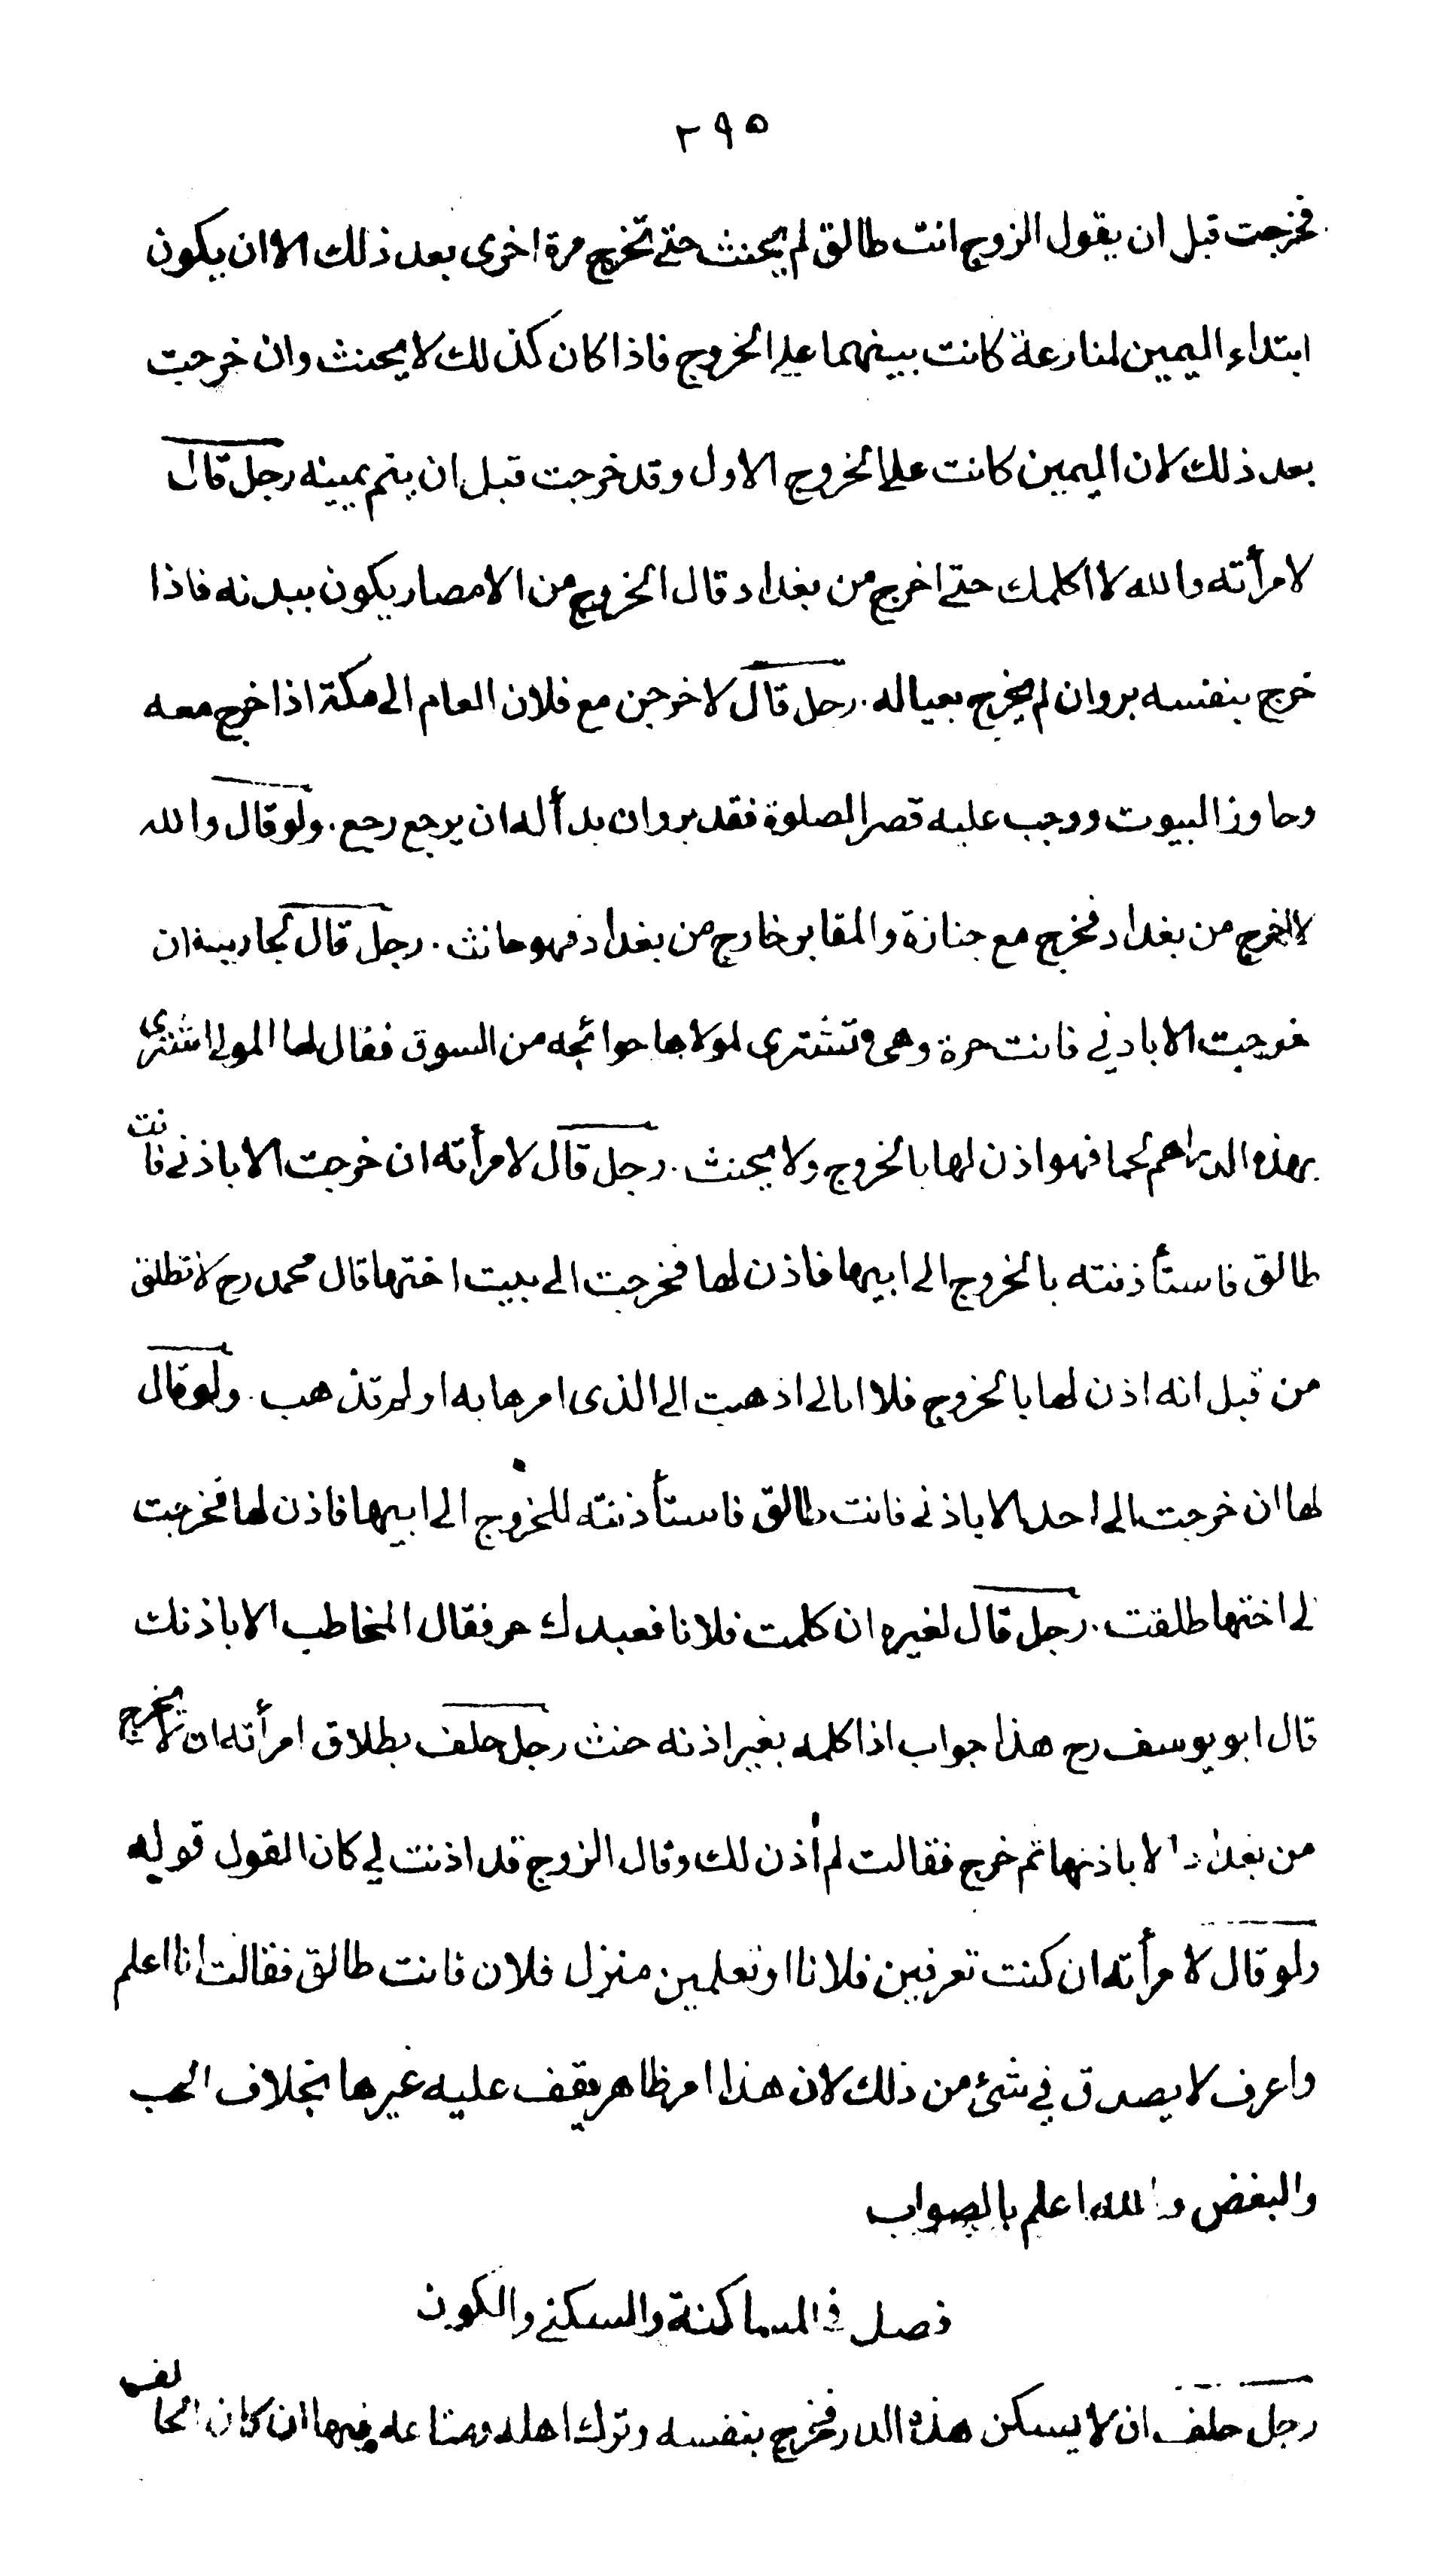 ٢٩٥
فخرجت قبل ان يقول الزوج انت طالق لم يحنث حتى تخرج مرة اخرى بعد ذلك الا ان يكون
ابتداء اليمين لمنازعة كانت بينهما على الخروج فاذا كان كذلك لا يحنث وان خرجت
بعد ذلك لان اليمين كانت على الخروج الاول وقد خرجت قبل ان يتم يمينه رجل قال
لامرأته والله لا اكلمك حتى اخرج من بغداد قال الخروج من الامصار يكون ببدنه فاذا
خرج بنفسه بر وان لم يخرج بعياله . رجل قال لاخرجن مع فلان العام الى مكة اذا خرج معه
وجاوز البيوت ووجب عليه قصر الصلوة فقد بر وان بدأ له ان يرجع رجع . ولو قال والله
لا اخرج من بغداد فخرج مع جنازة والمقابر خارج من بغداد فهو حانث . رجل قال لجاريته ان
خرجت الا باذني فانت حرة وهى تشترى لمولاها حوائجه من السوق فقال لها المولى اشترى
بهذه الدراهم لحما فهو اذن لها بالخروج ولا يحنث . رجل قال لامرأته ان خرجت الا باذنى فانت
طالق فاستأذنته بالخروج الى ابيها فاذن لها فخرجت الى بيت اختها قال محمد رح لا تطلق
من قبل انه اذن لها بالخروج فلا ابالى اذهبت الى الذى امرها به او لم تذهب . ولو قال
لها ان خرجت الى احد الا باذنى فانت طالق فاستأذنته للخروج الى ابيها فاذن لها فخرجت
لى اختها طلقت . رجل قال لغيره ان كلمت فلانا فعبدك حر فقال المخاطب الا باذنك
قال ابو يوسف رح هذا جواب اذا كلمه بغير اذنه حنث رجل حلف بطلاق امرأته ان لا يخرج
من بغداد الا باذنها ثم خرج فقالت لم أذن لك وقال الزوج قد اذنت لي كان القول قوله
ولو قال لامرأته ان كنت تعرفين فلانا او تعلمين منزل فلان فانت طالق فقالت انا اعلم
واعرف لا يصدق في شئ من ذلك لان هذا امر ظاهر يقف عليه غيرها بخلاف الحب
والبغض والله اعلم بالصواب
فصل في المساكنة والسكنى والكون
رجل حلف ان لا يسكن هذه الدار فخرج بنفسه وترك اهله ومتاعه فيها ان كان الحالف